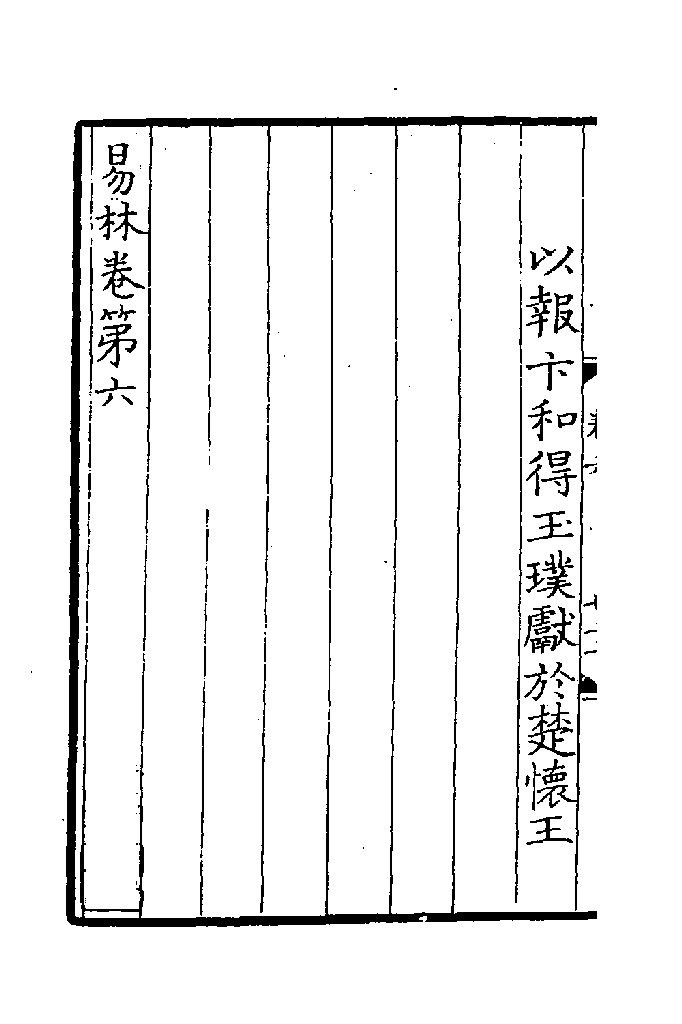 以報卞和得玉璞獻於楚懷王
易林卷第六